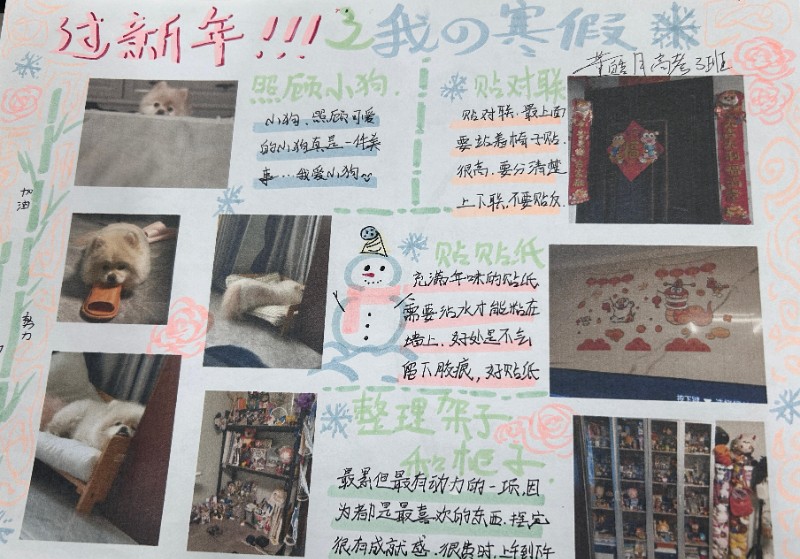 过新年!!!之我の寒假
高考3班
照顾小狗.
小狗.照顾可爱
的小狗真是一件美
事...我爱小狗~
贴对联
贴对联.最上面
要站着椅子贴.
很高.要分清楚
上下联.不要贴反.
加油
努力
贴贴纸
充满年味的贴纸
需要沾水才能粘在
墙上.好处是不会
留下胶痕,好贴纸
整理架子
和柜子.
最累但最有动力的一项.因
为都是最喜欢的东西.摆完
很有成就感.很费时.上午到下午